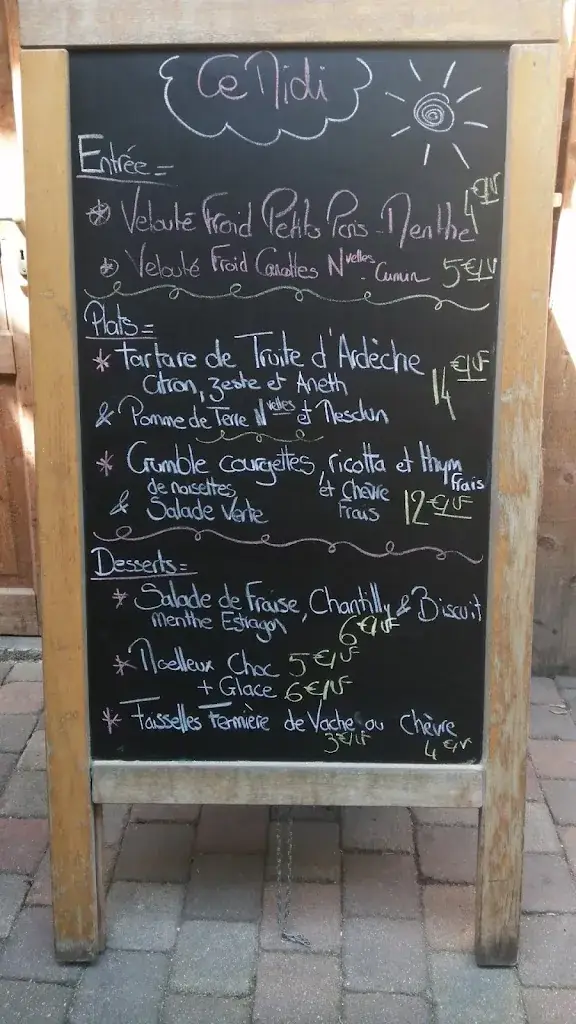 Ce Midi
Entrée =
* Velouté Froid Petits Pois - Menthe 4 €
* Velouté Froid Carottes Nvelles - Cumin 5 €
Plats =
* Tartare de Truite d'Ardèche 14 €
Citron, zeste et Aneth
& Pomme de Terre Nvelles et Mesclun
* Crumble courgettes, ricotta et thym frais
de noisettes et Chèvre Frais 12 €
& Salade Verte
Desserts =
* Salade de Fraise, Chantilly & Biscuit
menthe Estragon 6 €
* Moelleux Choc 5 €
+ Glace 6 €
* Faisselles Fermière de Vache ou Chèvre
3 € 4 €